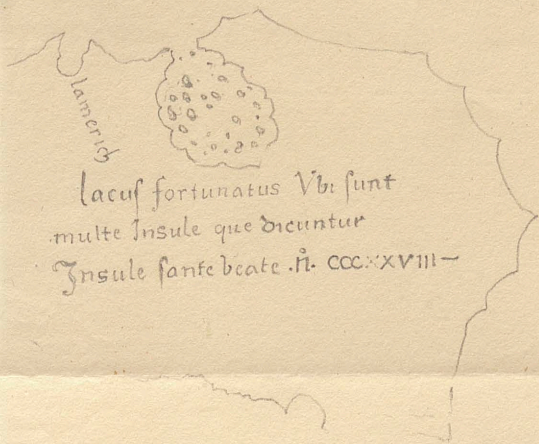 lamerich
lacus fortunatus Vbi sunt
multe Insule que dicuntur
Insule sante beate .n̊. CCCXXVIII–